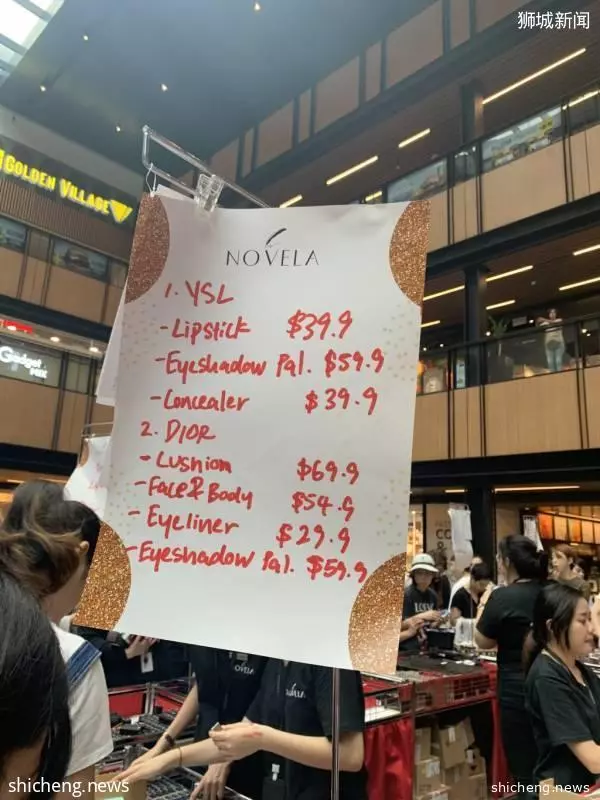 狮城新闻
GOLDEN VILLAGE
NOVELA
1. YSL
- Lipstick $39.9
- Eyeshadow Pal. $59.9
- Concealer $39.9
2. DIOR
- Cushion $69.9
- Face & Body $54.9
- Eyeliner $29.9
- Eyeshadow Pal. $59.9
Gadget
MIX
shicheng.news
shicheng.news